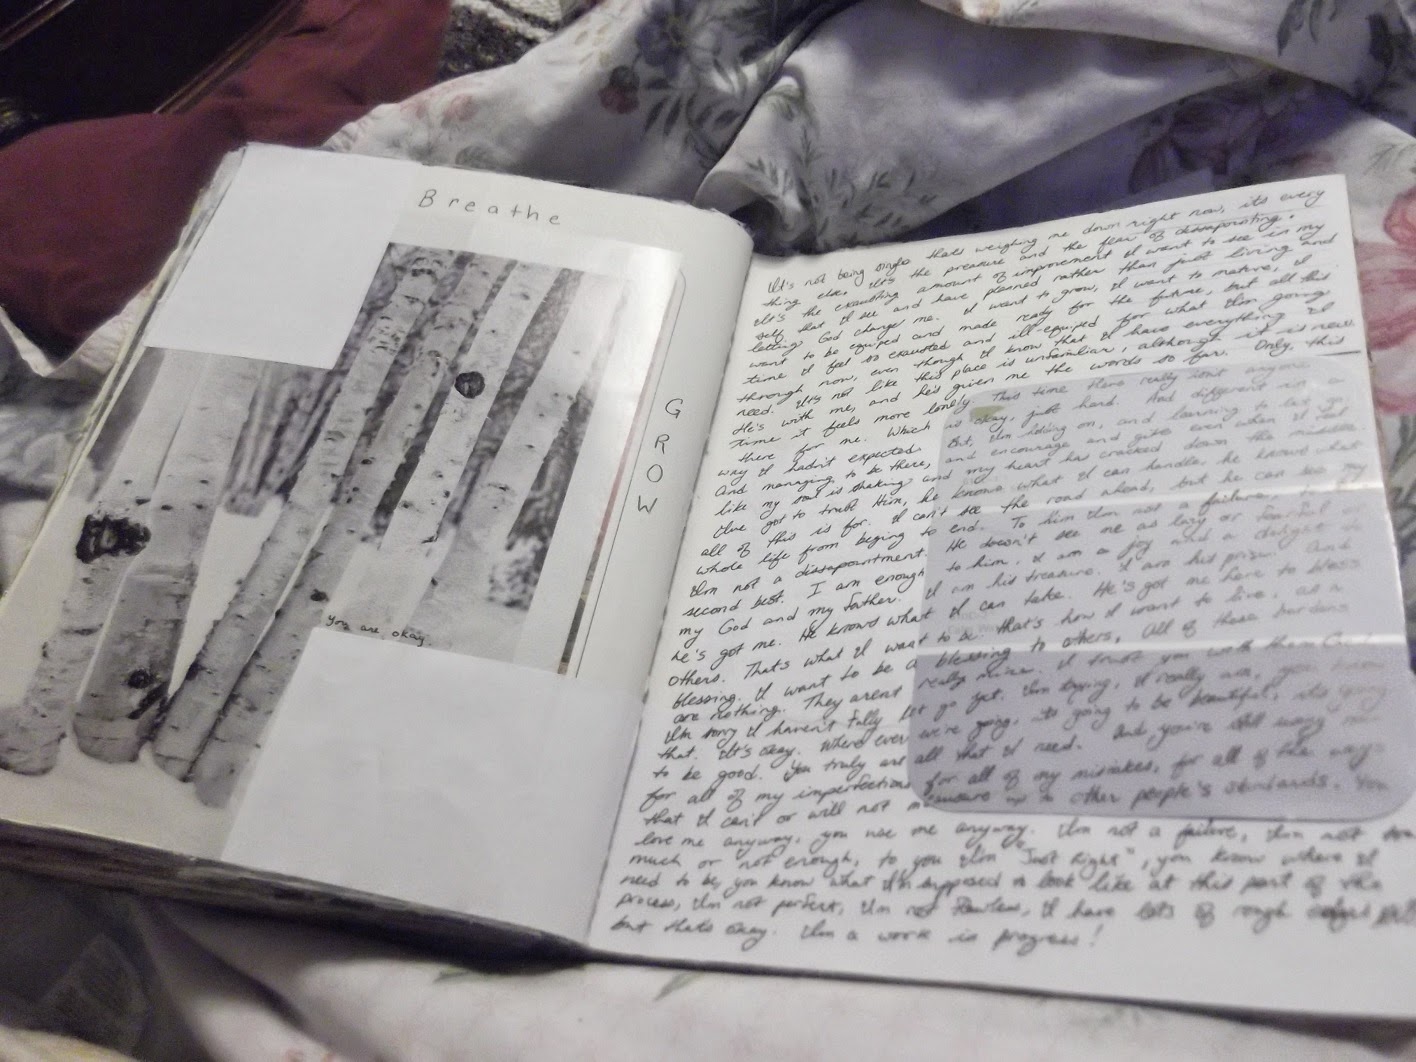 Breathe
GROW
you are okay
It's not being single thats weighing me down right now, its every
thing else, it's the preasure and the fear of dissapointing.
It's the exausting amount of improvement I want to see in my
self that I see and have planned rather than just living and
letting God change me. I want to grow, I want to mature, I
want to be equiped and made ready for the future, but all this
time I feel so exausted and ill-equiped for what I'm going
through now, even though I know that I have everything I
need. It's not like this place is unfamiliar, although it is new.
He's with me, and he's given me the words so far. Only, this
time it feels more lonely. This time there really isn't anyone
there for me. Which is okay, just hard. And different in a
way I hadn't expected. But, I'm holding on, and learning to let go.
And managing to be there, and encourage and give even when I feel
like my soul is shaking and my heart has cracked down the middle.
I've got to trust Him, he knows what I can handle, he knows what
all of this is for. I can't see the road ahead, but he can see my
whole life from begining to end. To him I'm not a failure,
I'm not a dissapointment. He doesn't see me as lazy or fearful or
second best. I am enough to him, I am a joy and a delight
my God and my father. I am his treasure. I am his prize. And
he's got me. He knows what I can take. He's got me here to bless
others. That's what I want to be. that's how I want to live, as a
blessing. I want to be a blessing to others, All of these burdens
are nothing. They arent really mine. I trust you with them God,
I'm sorry I haven't fully let go yet. I'm trying, I really am, you know
that. It's okay. Where ever we're going, its going to be beautiful, its going
to be good. You truly are all that I need. And you're still using me
for all of my imperfections for all of my mistakes, for all of the ways
that I can't or will not measure up to other people's standards. You
love me anyway, you use me anyway. I'm not a failure, I'm not too
much or not enough, to you I'm "Just Right", you know where I
need to be, you know what I'm supposed to look like at this part of the
process, I'm not perfect, I'm not flawless, I have lots of rough edges
but thats okay. I'm a work in progress!